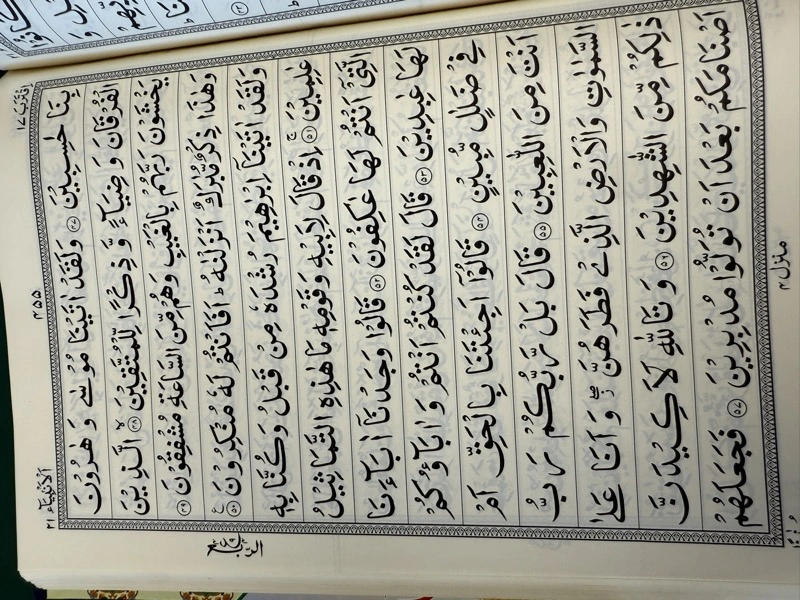 اقترب ١٧
٤٥٥
الانبیآء ٢١
بِنَا حٰسِبِیْنَ ﴿٤٧﴾ وَلَقَدْ اٰتَیْنَا مُوْسٰی وَ هٰرُوْنَ
الْفُرْقَانَ وَ ضِیَآءً وَّ ذِكْرًا لِّلْمُتَّقِیْنَ ﴿٤٨﴾ الَّذِیْنَ
یَخْشَوْنَ رَبَّهُمْ بِالْغَیْبِ وَهُمْ مِّنَ السَّاعَةِ مُشْفِقُوْنَ ﴿٤٩﴾
وَهٰذَا ذِكْرٌ مُّبٰرَكٌ اَنْزَلْنٰهُ ؕ اَفَاَنْتُمْ لَهٗ مُنْكِرُوْنَ ﴿٥٠﴾
وَلَقَدْ اٰتَیْنَاۤ اِبْرٰهِیْمَ رُشْدَهٗ مِنْ قَبْلُ وَكُنَّا بِهٖ
عٰلِمِیْنَ ﴿٥١﴾ اِذْ قَالَ لِاَبِیْهِ وَقَوْمِهٖ مَا هٰذِهِ التَّمَاثِیْلُ
الَّتِیْۤ اَنْتُمْ لَهَا عٰكِفُوْنَ ﴿٥٢﴾ قَالُوْا وَجَدْنَاۤ اٰبَآءَنَا
لَهَا عٰبِدِیْنَ ﴿٥٣﴾ قَالَ لَقَدْ كُنْتُمْ اَنْتُمْ وَ اٰبَآؤُكُمْ
فِیْ ضَلٰلٍ مُّبِیْنٍ ﴿٥٤﴾ قَالُوْۤا اَجِئْتَنَا بِالْحَقِّ اَمْ
اَنْتَ مِنَ اللّٰعِبِیْنَ ﴿٥٥﴾ قَالَ بَلْ رَّبُّكُمْ رَبُّ
السَّمٰوٰتِ وَالْاَرْضِ الَّذِیْ فَطَرَهُنَّ ۖ وَ اَنَا عَلٰی
ذٰلِكُمْ مِّنَ الشّٰهِدِیْنَ ﴿٥٦﴾ وَ تَاللّٰهِ لَاَكِیْدَنَّ
اَصْنَامَكُمْ بَعْدَ اَنْ تُوَلُّوْا مُدْبِرِیْنَ ﴿٥٧﴾ فَجَعَلَهُمْ
الربع
منزل ٤